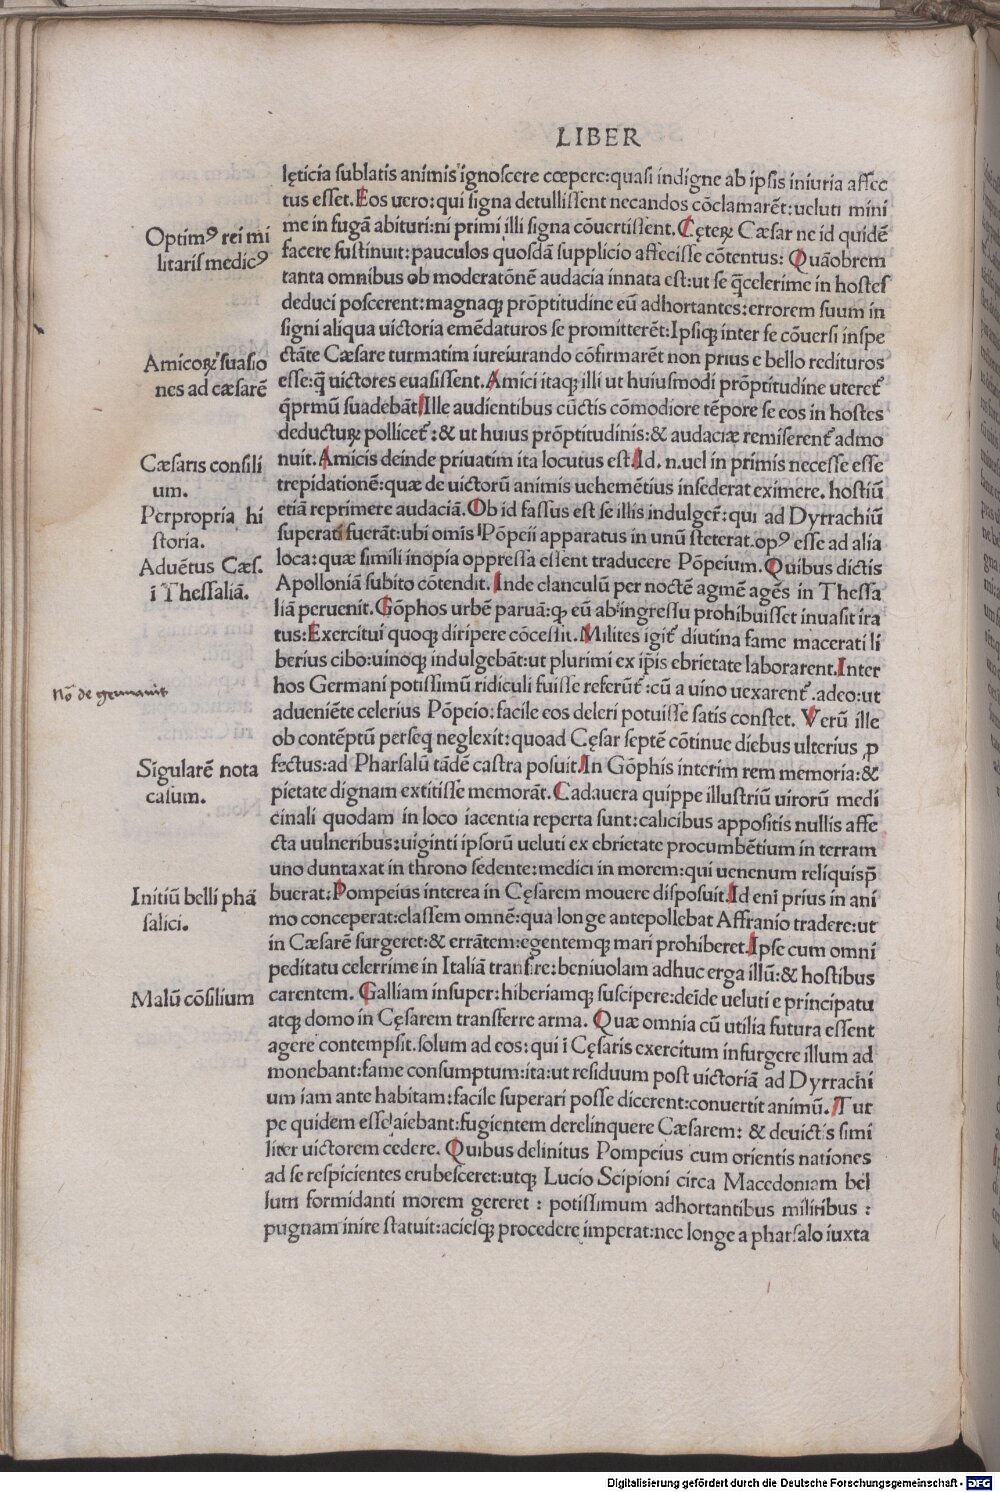 LIBER
lęticia sublatis animis ignoscere cœpere:quasi indigne ab ipsis iniuria affec
tus esset.Eos uero:qui signa detulissent necandos cōclamarēt:ueluti mini
me in fugā abituri:ni primi illi signa cōuertissent.Cęteꝝ Cæsar ne id quidē
Optimꝰ rei mi
litaris medicꝰ
facere sustinuit:pauculos quosdā supplicio affecisse cōtentus: Quāobrem
tanta omnibus ob moderatōnē audacia innata est:ut se q̄celerime in hostes
deduci poscerent:magnaqꝫ prōptitudine eū adhortantes:errorem suum in
signi aliqua uictoria emēdaturos se promitterēt:Ipsiqꝫ inter se cōuersi inspe
Amicoꝝ suasio
nes ad cæsarē
ctāte Cæsare turmatim iureiurando cōfirmarēt non prius e bello redituros
esse:q̄ uictores euasissent.Amici itaqꝫ illi ut huiusmodi prōptitudine uteret᷑
q̄prmū suadebāt.Ille audientibus cūctis cōmodiore tēpore se eos in hostes
deducturꝝ pollicet᷑:& ut huius prōptitudinis:& audaciæ remiserent᷑ admo
Cæsaris consili
um.
nuit.Amicis deinde priuatim ita locutus est.Id.n.uel in primis necesse esse
trepidationē:quæ de uictorū animis uehemētius insederat eximere. hostiū
Perpropria hi
storia.
etiā reprimere audaciā.Ob id fassus est se illis indulger᷑:qui ad Dyrrachiū
superati fuerāt:ubi omīs Pōpeii apparatus in unū steterat.opꝰ esse ad alia
Aduētus Cæs.
ī Thessaliā.
loca:quæ simili inopia oppressa essent traducere Pōpeium.Quibus dictis
Apolloniā subito cōtendit.Inde clanculū per noctē agmē agēs in Thessa
liā peruenit.Gōphos urbē paruā:qꝫ eū ab ingressu prohibuisset inuasit ira
tus:Exercitui quoqꝫ diripere cōcessit.Milites igit᷑ diutina fame macerati li
berius cibo:uinoqꝫ indulgebāt:ut plurimi ex ip̄is ebrietate laborarent.Inter
Nō de germanis
hos Germani potissimū ridiculi fuisse referūt᷑:cū a uino uexarent᷑.adeo:ut
adueniēte celerius Pōpeio:facile eos deleri potuisse satis constet. Verū ille
ob contēptū perseq neglexit:quoad Cęsar septē cōtinue diebus ulterius ꝓ
Sigularē nota
casum.
fectus:ad Pharsalū tādē castra posuit.In Gōphis interim rem memoria:&
pietate dignam extitisse memorāt.Cadauera quippe illustriū uirorū medi
cinali quodam in loco iacentia reperta sunt:calicibus appositis nullis affe
cta uulneribus:uiginti ipsorū ueluti ex ebrietate procumbētium in terram
uno duntaxat in throno sedente:medici in morem:qui uenenum reliquisp̄
Initiū belli phā
salici.
buerat:Pompeius interea in Cęsarem mouere disposuit.Id enī prius in ani
mo conceperat:classem omnē:qua longe antepollebat Affranio tradere:ut
in Cæsarē surgeret:& errātem:egentemqꝫ mari prohiberet.Ipse cum omni
peditatu celerrime in Italiā transire:beniuolam adhuc erga illū:& hostibus
Malū cōsilium
carentem. Galliam insuper:hiberiamqꝫ suscipere:deīde ueluti e principatu
atqꝫ domo in Cęsarem transferre arma. Quæ omnia cū utilia futura essent
agere contempsit.solum ad eos:qui ī Cęsaris exercitum insurgere illum ad
monebant:fame consumptum:ita:ut residuum post uictoriā ad Dyrrachi
um iam ante habitam:facile superari posse dicerent:conuertit animū.Tur
pe quidem esse aiebant:fugientem derelinquere Cæsarem: & deuictis simi
liter uictorem cedere. Quibus delinitus Pompeius cum orientis nationes
ad se respicientes erubesceret:utqꝫ Lucio Scipioni circa Macedoniam bel
lum formidanti morem gereret : potissimum adhortantibus militibus :
pugnam inire statuit:aciesqꝫ procedere imperat:nec longe a pharsalo iuxta
Digitalisierung gefördert durch die Deutsche Forschungsgemeinschaft - DFG